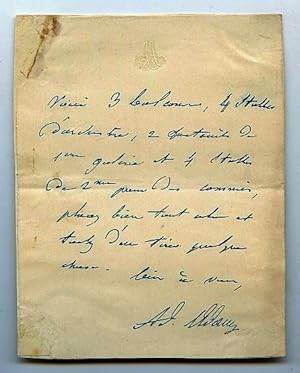 Voici 3 balcons, 4 stalles
d'orchestre, 2 fauteuils de
1ère galerie et 4 stalles
de 2me pour des commis,
placez bien tout cela et
d'en tirer quelque
chose.
bien à vous,
Ad. Adam